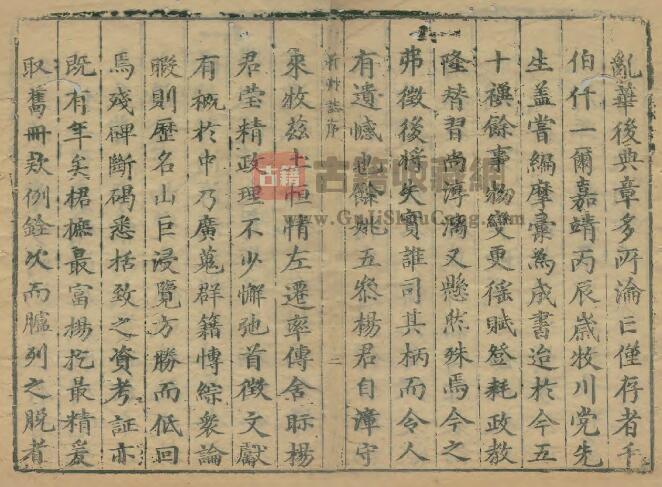 亂華後典章多所淪亡僅存者千
伯仟一爾嘉靖丙辰歲牧川党先
生盖嘗編摩彙為成書迨於今五
十禩餘事物變更徭賦登耗政教
隆替習尚淳漓又懸然殊焉今之
弗徵後將失實誰司其柄而令人
有遺憾也餘姚五泰楊君自漳守
新野誌序
二
來牧茲土恒情左遷率傳舍眎楊
君瑩精政理不少懈弛首徵文獻
有概於中乃廣蒐群籍愽綜衆論
暇則歷名山巨浸覽方勝而低回
焉殘碑斷碣悉括致之資考証亦
既有年矣摭最富揚扢最精爰
取舊冊欵例銓次而臚列之脫者
古籍
古籍收藏網
www.GuJiShouCang.com